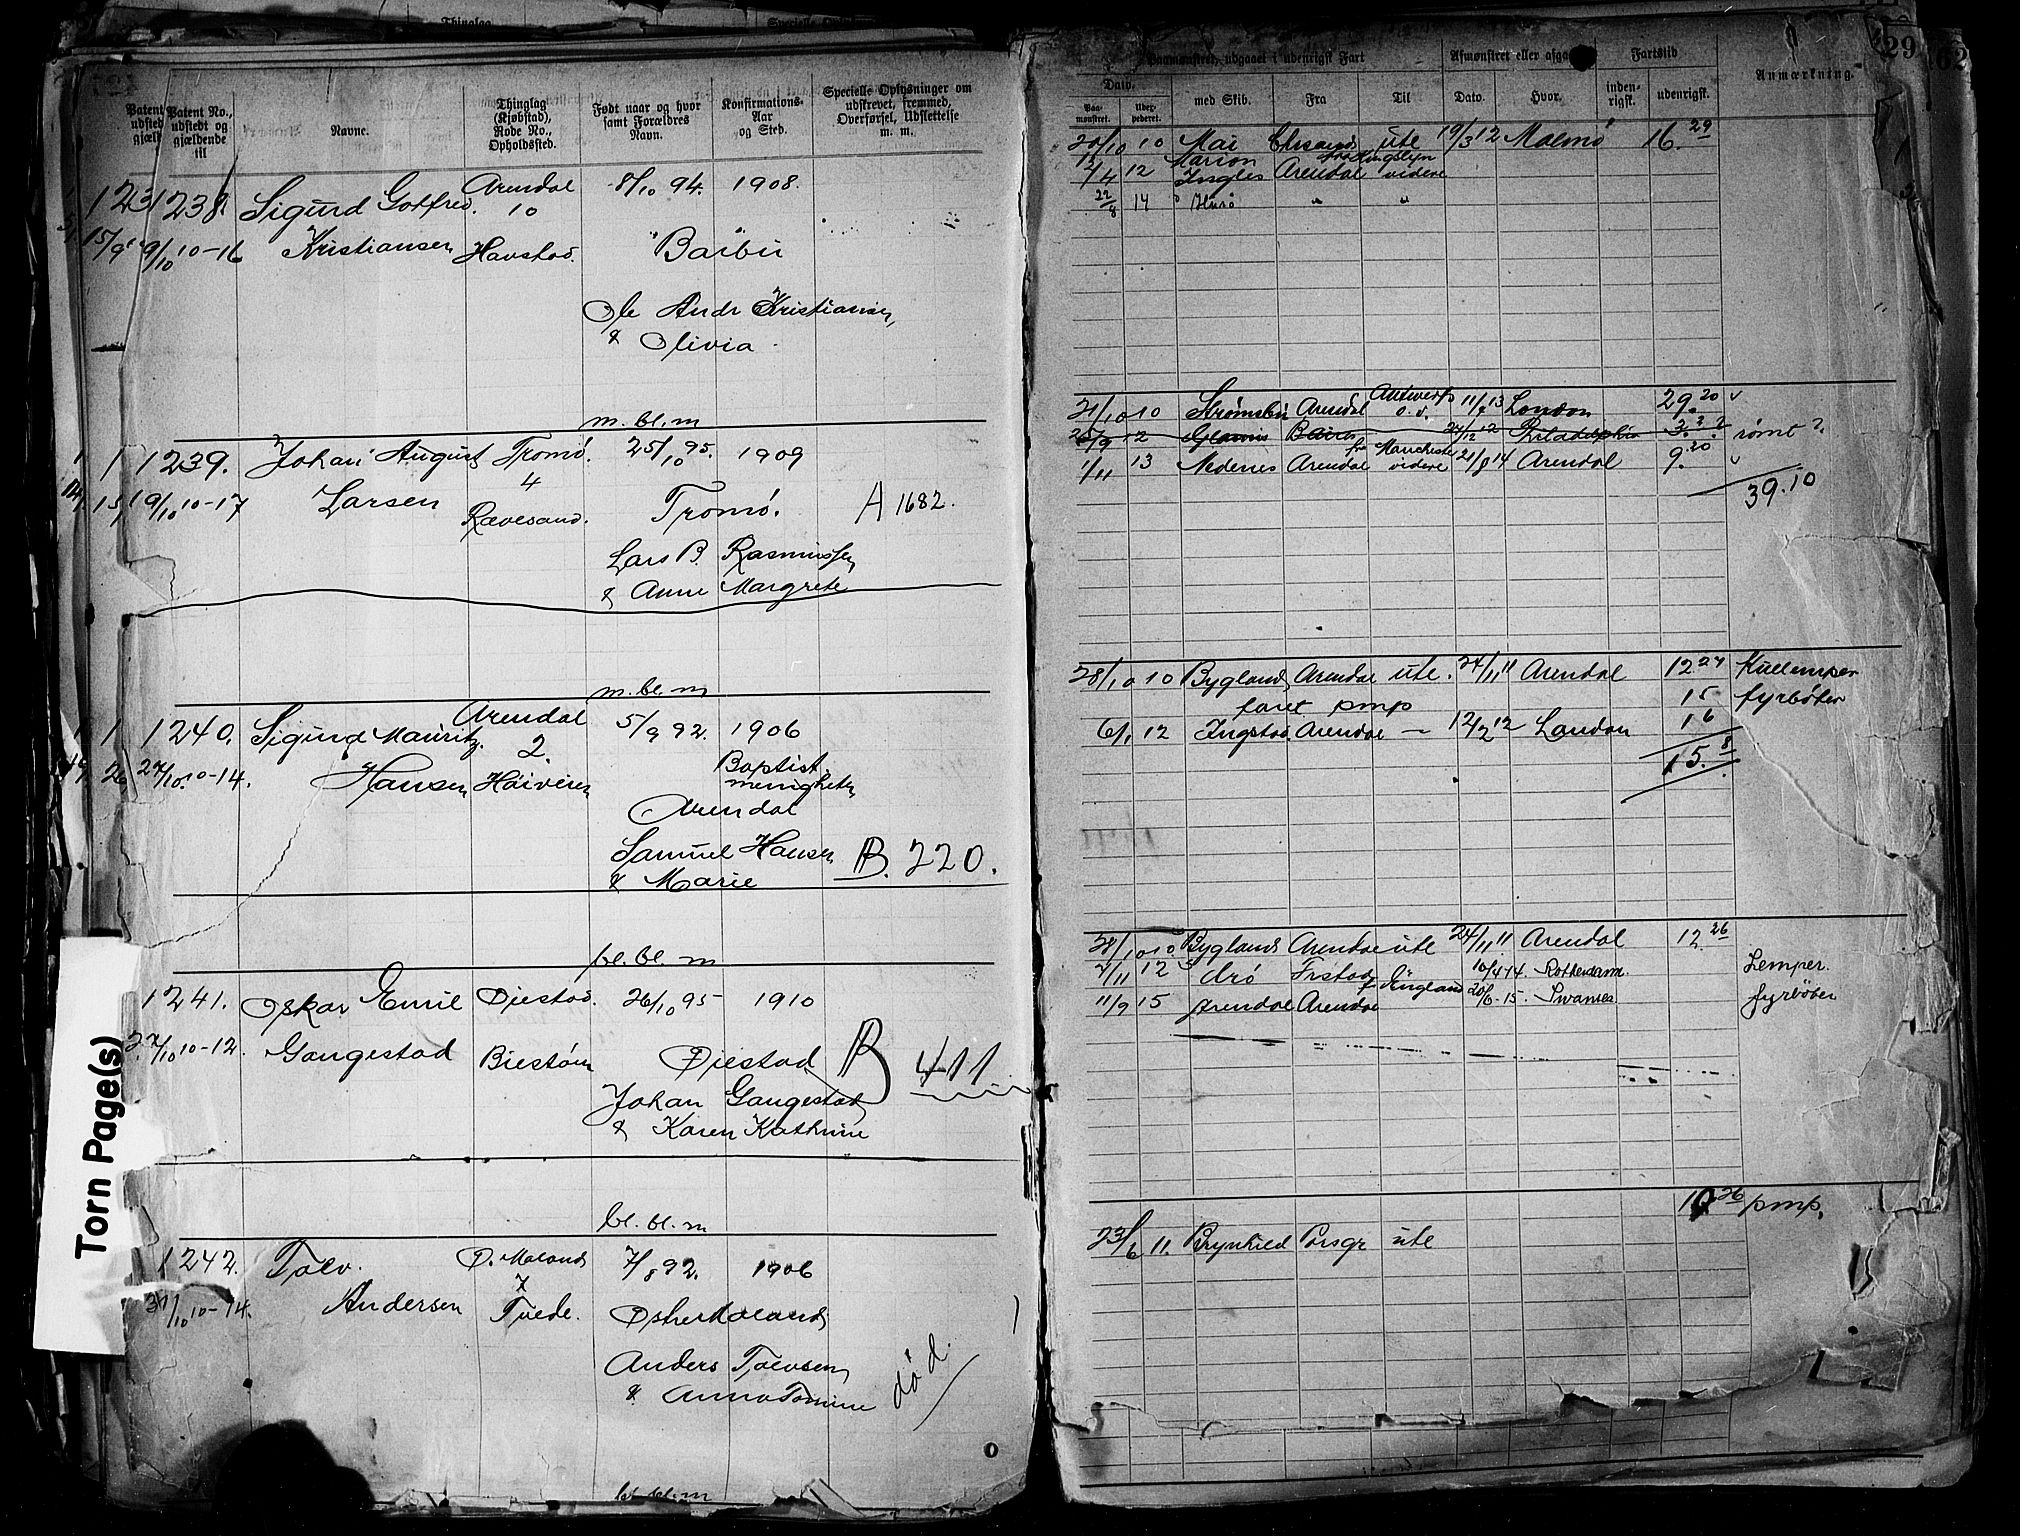 Patent No., udstedt og gjældende til
Navne.
Thinglag (Kjøbstad), Rode No., Opholdssted.
Født naar og hvor samt Forældres Navn.
Konfirmations- Aar og Sted.
Specielle Oplysninger om udskrevet, fremmed, Overførsel, Udslettelse m. m.
1238. Sigurd Gotfred Arendal 10 8/10 94. 1908.
19/10 10-16 Kristiansen Havstad. Barbu
Ole Andr Kristiansen
& Olivia
m. bl. m
1239. Johan August Tromø. 4 25/10 95. 1909
19/10 10-17 Larsen Rævesand. Tromø. A 1682.
Lars B. Rasmussen
& Anne Margrete
m. bl. m
1240. Sigurd Mauritz Arendal 2. 5/9 92. 1906
27/10 10-14. Hansen Høiveien Baptist menigheten
Arendal
Samuel Hansen B. 220.
& Marie
bl. bl. m
1241. Oskar Emil Øiestad. 26/10 95 1910
27/10 10-12. Gangestad Biestøen Øiestad B 411
Johan Gangestad
& Karen Kathrine
bl. bl. m
1242. Tolv. Ø. Moland 7 7/8 92. 1906
31/10 10-14. Andersen Tvede. Østre Moland
Anders Tolvsen død.
& Anna Tomine
bl. bl. m
Torn Page(s)
29
62
Paamønstret, udgaaet i udenrigsk Fart
Afmønstret eller afgaa
Fartstid
Anmærkning.
Dato.
Paamønstret.
med Skib.
Fra
Til
Dato.
Hvor.
inden- rigsk.
udenrigsk.
20/10 10 Mai Chrsand ute 19/3 12 Malmø 16. 29
12/4 12 Marion Ingles Arendal fra Kingslyn videre
22/8 14 " "
21/10 10 Strømsbu Arendal Antwerp o. v. 11/4 13 London 29. 20 v
26/9 12 Glamis 24/12 12 Philadelphia 3. rømt ?
1/11 13 Nedenes Arendal fra Manchester videre 21/8 14 Arendal 9. 20 v
39.10
28/10 10 Bygland, Arendal ute. 24/11 11 Arendal 12 24 Kullemper
faret pmp 15 fyrbøter
6/1 12 Ingstad. Arendal — 12/2 12 London 16
15. 8
28/10 10 Bygland Arendal ute 24/11 11 Arendal 12 26
2/11 12 Arø f England 10/4 14. Rotterdam. Lemper.
11/9 15 Arendal Arendal 20/6-15. Swansea fyrbøter
26 pmp.
23/6 11. Brynhild Porsgr ute